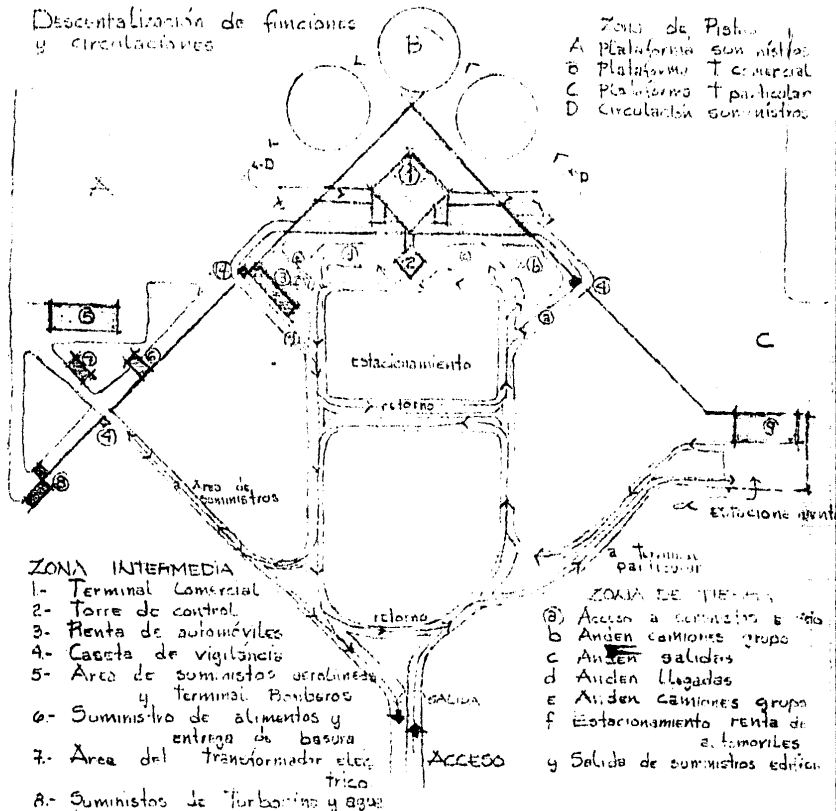 Descentalización de funciones
y circulaciones
Zona de Pistas
A Plataforma suministros
B Plataforma T comercial
C Plataforma T particular
D Circulación suministros
B
A
D
D
1
2
4
3
b
4
a
5
7
6
C
estacionamiento
retorno
9
4
8
a Area de
suministros
a Terminal
particular
retorno
SALIDA
ACCESO
ZONA INTERMEDIA
1.- Terminal Comercial
2.- Torre de control
3.- Renta de automóviles
4.- Caseta de vigilancia
5- Area de suministos aerolineas
y Terminal Bomberos
6.- Suministro de alimentos y
entrega de basura
7.- Area del transformador eléc
trico
8.- Suministos de Turbosina y agua
ZONA DE
a Acceso a
b Anden camiones grupo
c Anden salidas
d Anden llegadas
E Anden camiones grupo
f Estacionamiento renta de
automoviles
y Salida de suministros